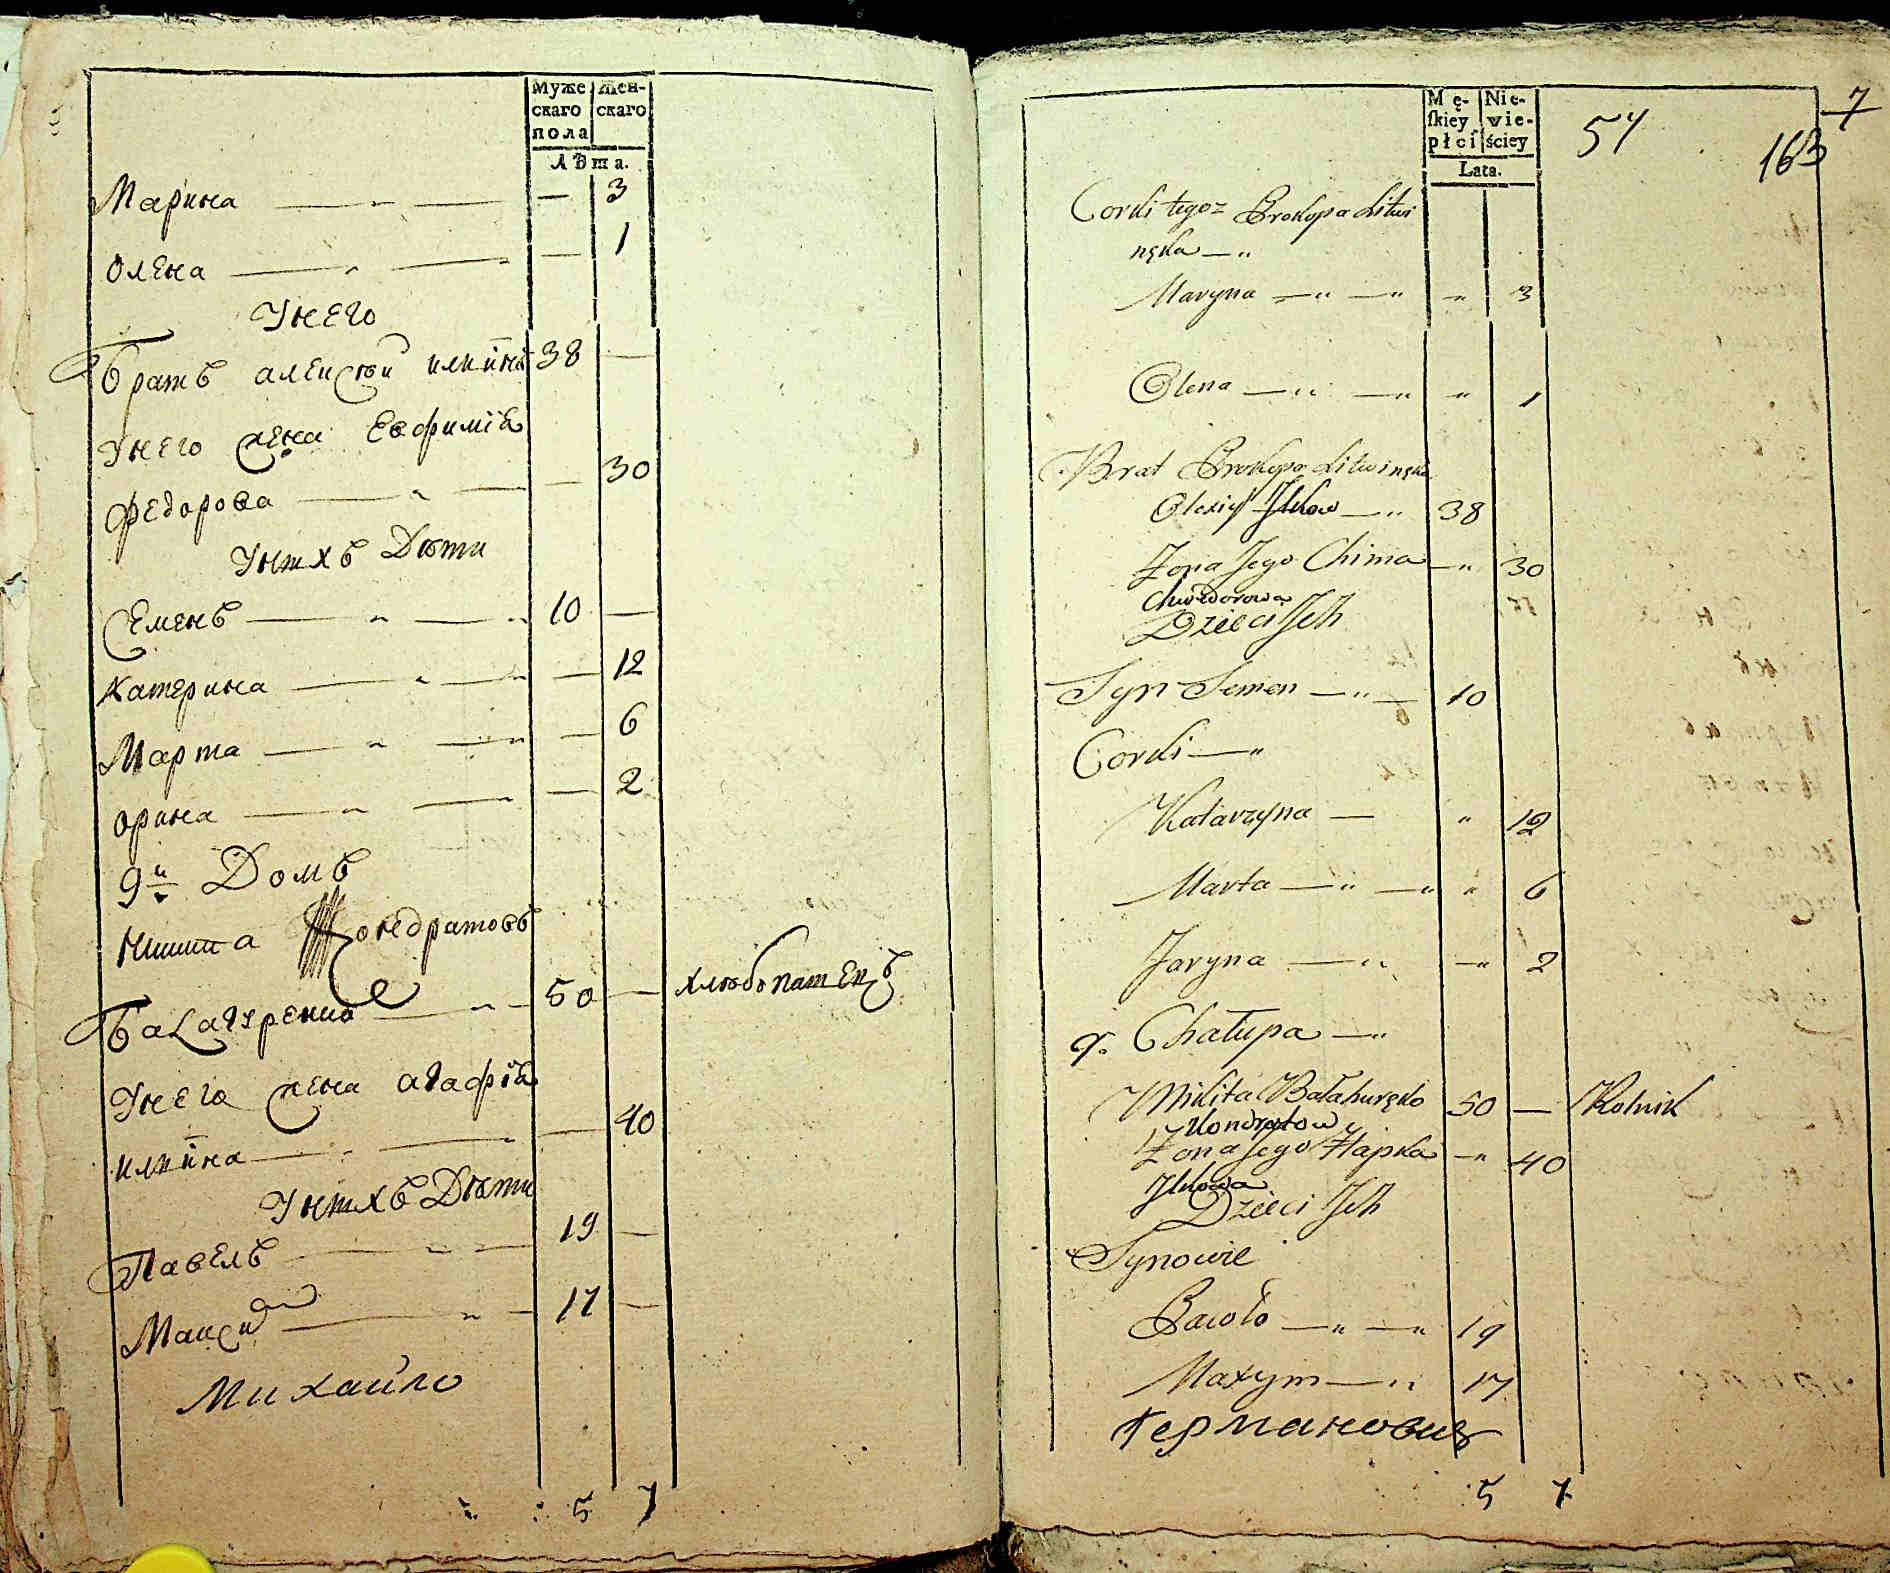 Муже Жен-
скаго скаго
пола
Лѣта.
Марина — „ — — 3
Олена — „ — — 1
Унего
Братъ алеисѣи илиинъ 38 —
Унего жена Евфимiѣ
Федорова — „ — — 30
Унихъ Дѣти
Семенъ — „ — „ 10 —
Катерина — „ — „ — 12
Марта — „ — „ — 6
орина — „ — „ — 2
9й Домъ
Никита Кондратовъ
Балагуренко — „ — 50 — хлѣбопатецъ
Унего жена агафiѣ
илиина — „ — — 40
Унихъ Дѣти
Павелъ — „ — 19 —
Максим — „ — 17 —
Михаило
5 7
Mę- Nie-
ſkiey wie-
płci ściey
Lata.
7
163
Corki tegoz Prokopa Litwi
nęka — „
Maryna — „ — „ „ 3
Olena — „ — „ „ 1
Brat Prokopa Litwinęka
Olexiy Ilkow — „ 38
Zona Jego Chima — „ 30
Chwedorowa
Dzieci Jch
Syn Semen — „ — 10
Corki — „
Katarzyna — „ 12
Marta — „ — „ „ 6
Jaryna — „ — „ 2
9. Chałupa — „
Mikita Bałahuręko 50 — Rolnik
Kondratow
Zona Jego Hapka — „ 40
Ilkowa
Dzieci Jch
Synowie
Pawło — „ — „ 19
Maxym — „ 17
Германовичъ
5 7